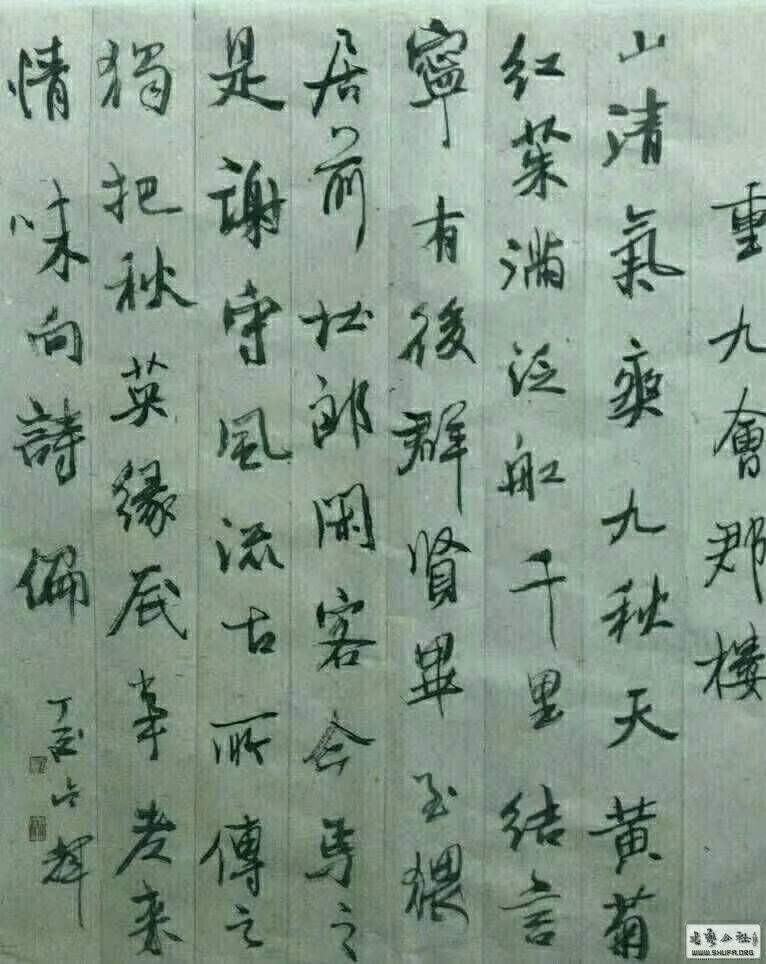 重九會郡樓
山清氣爽九秋天黃菊
紅茱滿泛舡千里結言
寧有後群賢畢至猥
居前杜郎閑客今焉之
是謝守風流古所傳之
獨把秋英緣底事老來
情味向詩偏
丁酉 輝
WWW.SHUFA.ORG